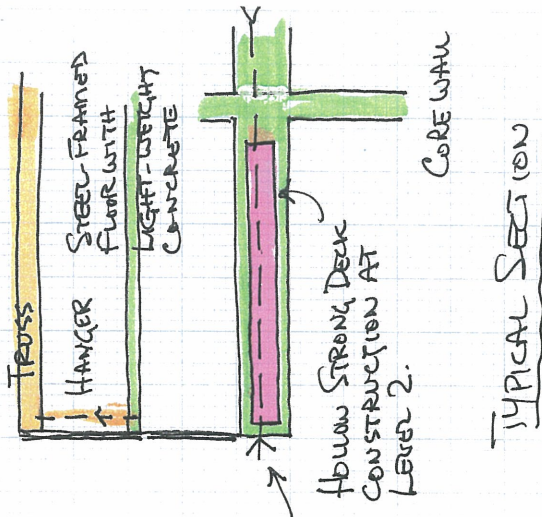 TRUSS
HANGER
STEEL-FRAMED
FLOOR WITH
LIGHT-WEIGHT
CONCRETE
HOLLOW STRONG DECK
CONSTRUCTION AT
LEVEL 2.
CORE WALL
TYPICAL SECTION